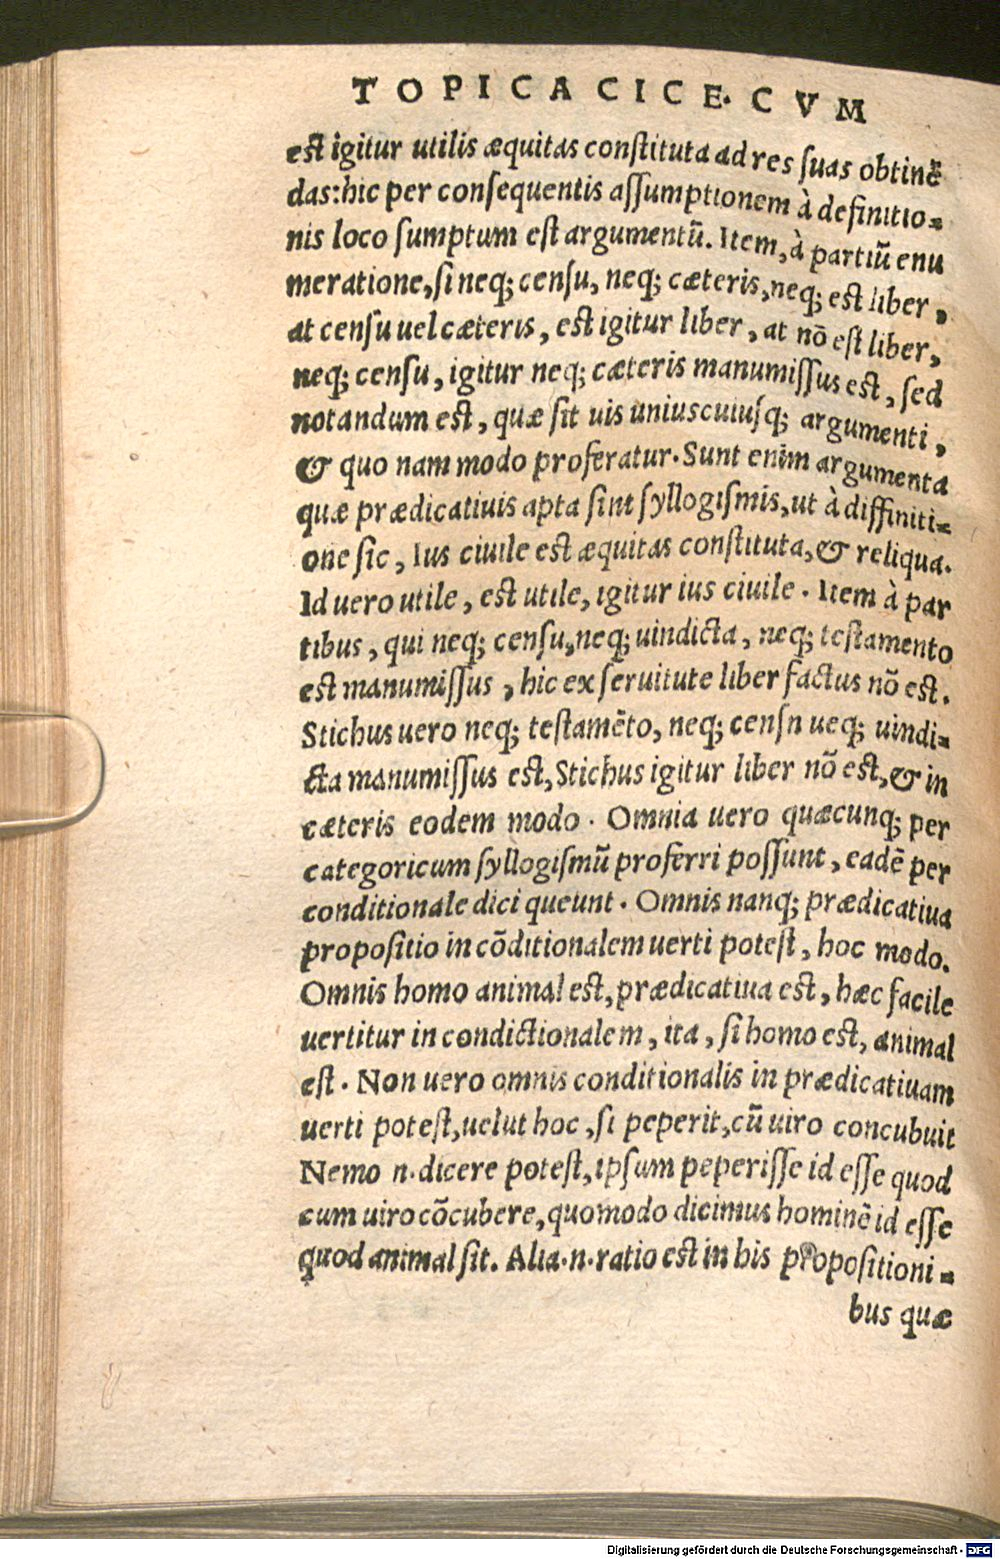 TOPICA CICE. CVM
est igitur utilis æquitas constituta ad res suas obtinē
das: hic per consequentis assumptionem à definitio=
nis loco sumptum est argumentū. Item, à partiū enu
meratione, si neq; censu, neq; cæteris, neq; est liber,
at censu uel cæteris, est igitur liber, at nō est liber,
neq; censu, igitur neq; cæteris manumissus est, sed
notandum est, quæ sit uis uniuscuiusq; argumenti,
& quo nam modo proferatur. Sunt enim argumenta
quæ prædicatiuis apta sint syllogismis, ut à diffiniti=
one sic, Ius ciuile est æquitas constituta, & reliqua.
Id uero utile, est utile, igitur ius ciuile. Item à par
tibus, qui neq; censu, neq; uindicta, neq; testamento
est manumissus, hic ex seruitute liber factus nō est.
Stichus uero neq; testamēto, neq; censn ueq; uindi=
cta manumissus est, Stichus igitur liber nō est, & in
cæteris eodem modo. Omnia uero quæcunq; per
categoricum syllogismū proferri possunt, eadē per
conditionale dici queunt. Omnis nanq; prædicatiua
propositio in cōditionalem uerti potest, hoc modo.
Omnis homo animal est, prædicatiua est, hæc facile
uertitur in condictionalem, ita, si homo est, animal
est. Non uero omnis conditionalis in prædicatiuam
uerti potest, uelut hoc, si peperit, cū uiro concubuit
Nemo n. dicere potest, ipsum peperisse id esse quod
cum uiro cōcubere, quomodo dicimus hominē id esse
quod animal sit. Alia.n.ratio est in his propositioni=
bus quæ
Digitalisierung gefördert durch die Deutsche Forschungsgemeinschaft - DFG